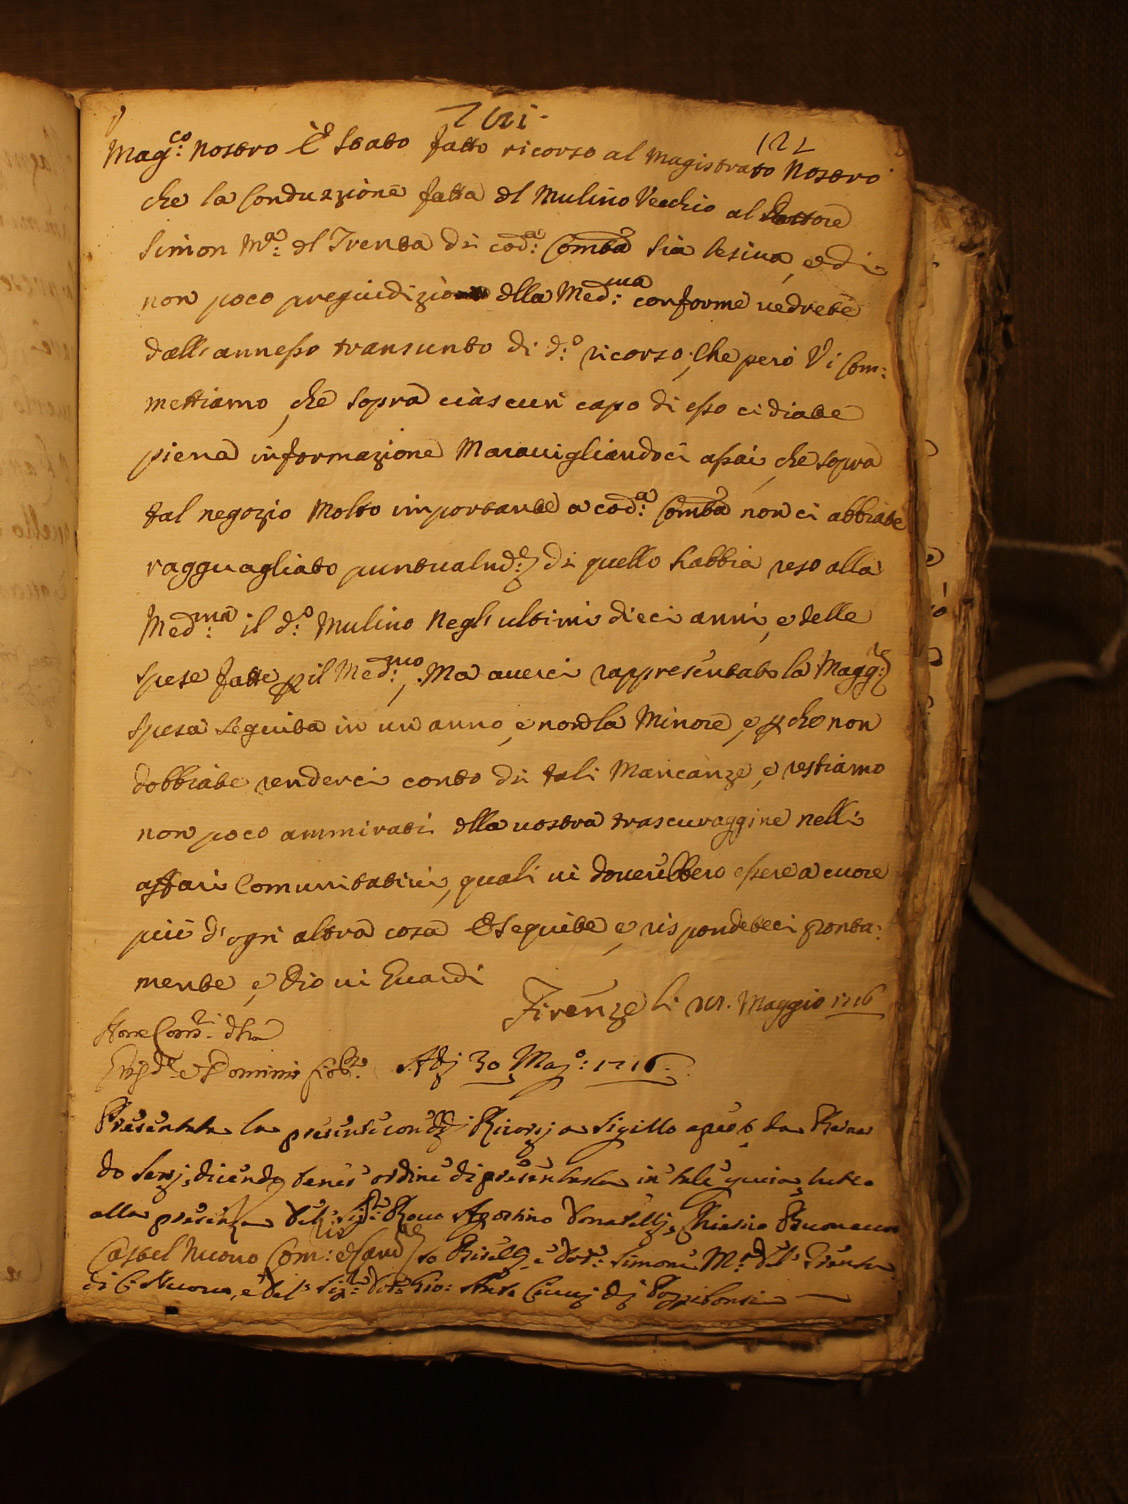 122
Mag:co Nostro È Stato fatto ricorso al Magistrato Nostro
che la Conduzzione fatta del Mulino Vecchio al Dottore
Simon M:a del Trenta di cod:a Comtà sia lesiva, e di
non poco pregiudizio della Med:ma conforme vedrete
dall'annesso transunto di d:o ricorso; Che però Vi Com:
mettiamo, che sopra ciascun capo di esso ci diate
piena informazione Maravigliandoci assai, che sopra
tal negozio Molto importante a cod:a Comtà non ci abbiate
ragguagliato puntualm:e di quello habbia reso alla
Med:ma il d:o Mulino Negl'ultimi dieci anni, e delle
spese fatte p il Med:mo, Ma averci rappresentato la Magg:re
spesa seguita in un anno, e non la Minore, e p che non
dobbiate renderci conto di tali Mancanze, e restiamo
non poco ammirati della vostra trascuraggine nelli
affari Comunitativi, quali vi doverebbero essere a cuore
più d'ogni altra cosa Eseguite e, rispondeteci pronta:
mente e, Dio vi Guardi
Firenze li Maggio 1716
Adj 30 Mag:o 1716.
Presentata la presente con Ricorsj a sigillo aperto da
do Senj, dicendo tener ordine di presentarla in tale guisa, tutto
alla presenza del Sig:re Agostino Donatellj,
Castel Nuovo Com: e Simone M:a del Trenta
di C: Nuovo, e del Sig:re Gio: Cinuzj dj Poggibonsi